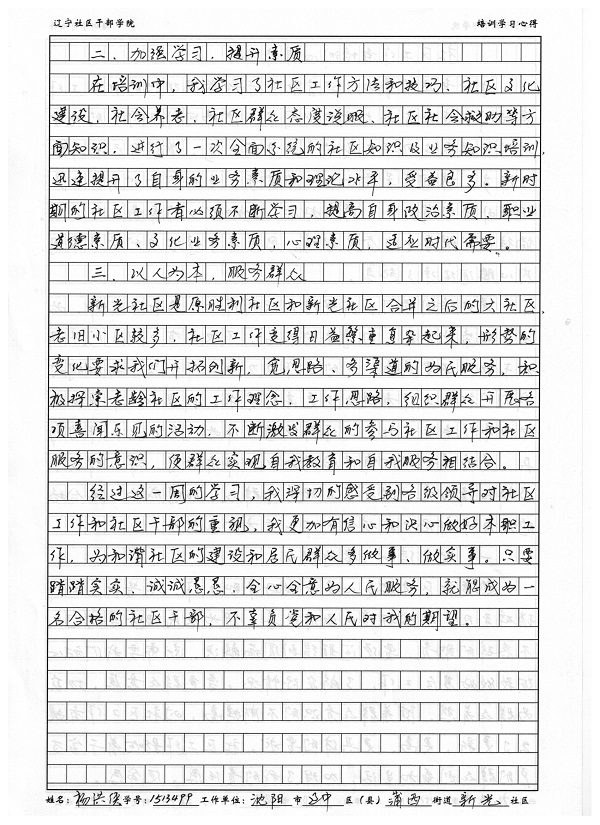 辽宁社区干部学院 培训学习心得
二、加强学习，提升素质
在培训中，我学习了社区工作方法和技巧、社区文化
建设、社会养老、社区群众态度说服、社区社会救助等方
面知识，进行了一次全面系统的社区知识及业务知识培训，
迅速提升了自身的业务素质和理论水平，受益良多。新时
期的社区工作者必须不断学习，提高自身政治素质、职业
道德素质、文化业务素质，心理素质，适应时代需要。
三、以人为本，服务群众
新光社区是原胜利社区和新光社区合并之后的大社区，
老旧小区较多，社区工作变得日益繁重复杂起来，形势的
变化要求我们开拓创新，宽思路、多渠道的为民服务，积
极探索老龄社区的工作理念、工作思路，组织群众开展各
项喜闻乐见的活动，不断激发群众的参与社区工作和社区
服务的意识，使群众实现自我教育和自我服务相结合。
经过这一周的学习，我深切的感受到各级领导对社区
工作和社区干部的重视，我更加有信心和决心做好本职工
作，为和谐社区的建设和居民群众多做事、做实事。只要
踏踏实实、诚诚恳恳，全心全意为人民服务，就能成为一
名合格的社区干部，不辜负党和人民对我的期望。
姓名：杨洪侠 学号：1513499 工作单位：沈阳 市 辽中 区（县） 蒲西 街道 新光 社区